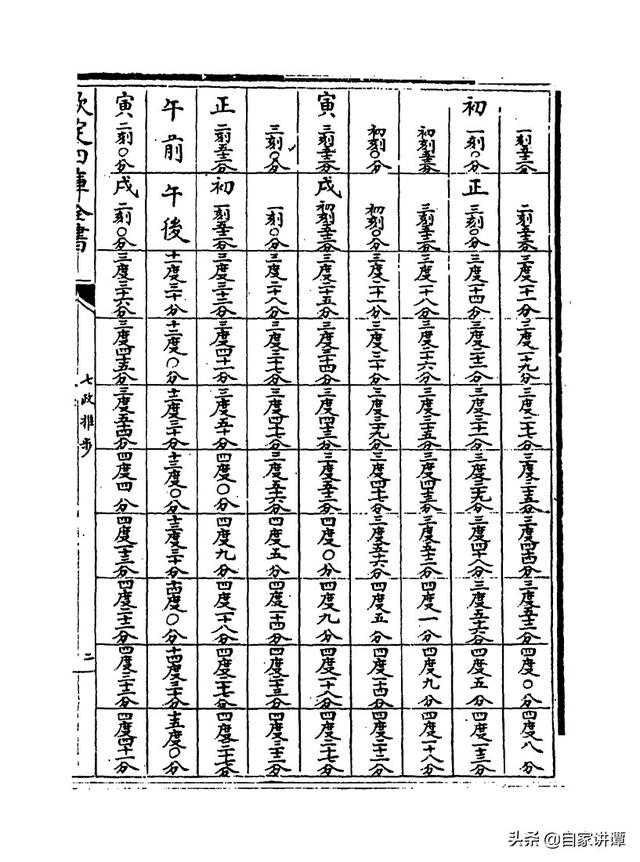 一刻 二刻 三度一十一分 三度一十九分 三度二十七分 三度三十五分 三度四十四分 三度五十二分 四度〇分 四度八分
初 一刻〇分 正 三刻〇分 三度一十四分 三度二十二分 三度三十一分 三度三十九分 三度四十八分 三度五十六分 四度五分 四度一十三分
初刻 三刻 三度一十八分 三度二十六分 三度三十五分 三度四十三分 三度五十二分 四度一分 四度九分 四度一十八分
初刻〇分 初刻〇分 三度二十一分 三度三十分 三度三十九分 三度四十七分 三度五十六分 四度五分 四度一十四分 四度二十二分
寅 三刻 戌 初刻 三度二十五分 三度三十四分 三度四十三分 三度五十二分 四度〇分 四度九分 四度一十八分 四度二十七分
三刻〇分 一刻〇分 三度二十八分 三度三十七分 三度四十七分 三度五十六分 四度五分 四度一十四分 四度二十三分 四度三十二分
正 二刻 初 一刻 三度三十二分 三度四十一分 三度五十分 四度〇分 四度九分 四度一十八分 四度二十七分 四度三十七分
午前 午後 十一度三十分 十二度〇分 十二度三十分 十三度〇分 十三度三十分 十四度〇分 十四度三十分 十五度〇分
寅 二刻〇分 戌 二刻〇分 三度三十六分 三度四十五分 三度五十四分 四度四分 四度一十三分 四度二十二分 四度三十二分 四度四十一分
欽定四庫全書
七政推步
二
头条 @自家讲谭